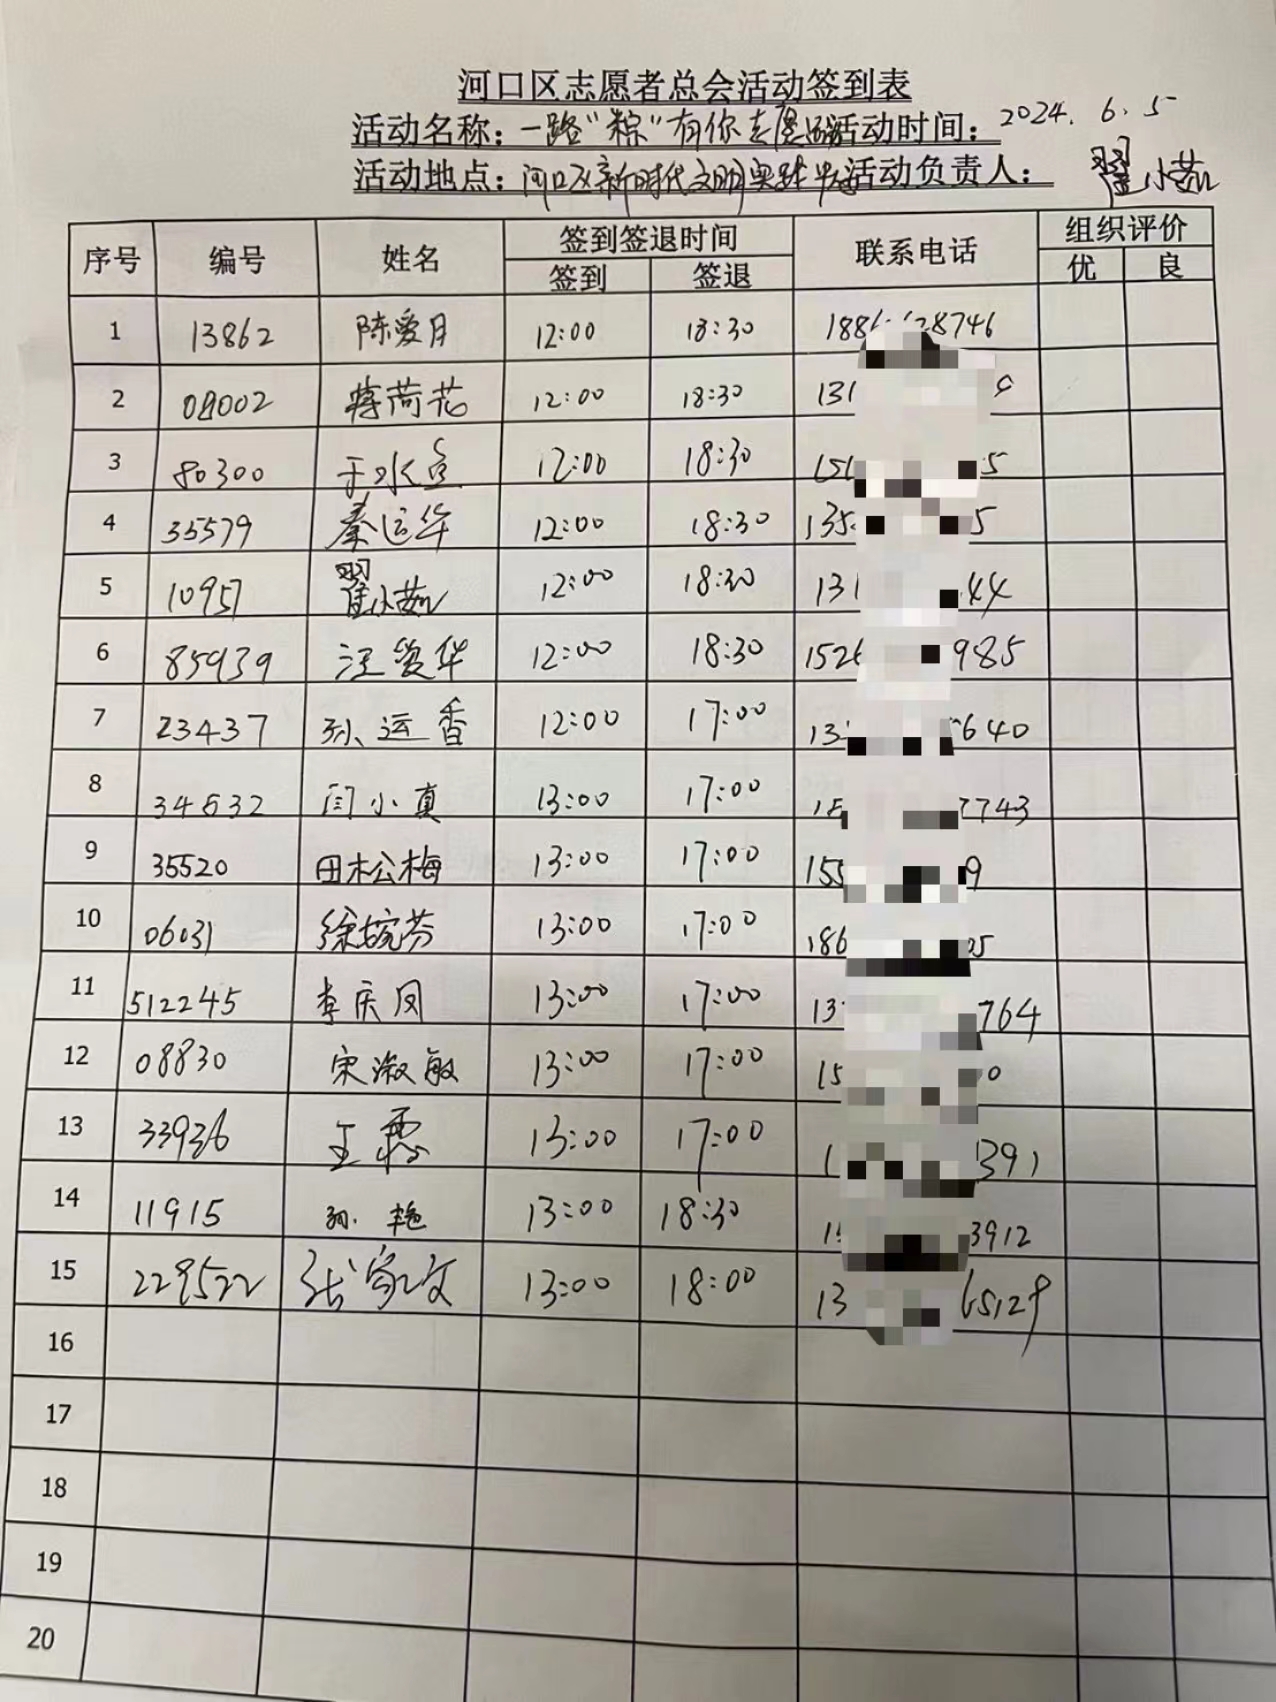 河口区志愿者总会活动签到表
活动名称：一路“粽”有你志愿 活动时间：2024.6.5
活动地点：河口区新时代文明实践 活动负责人：翟小茹
序号 编号 姓名 签到签退时间 联系电话 组织评价
签到 签退 优 良
1 13862 陈爱月 12:00 18:30
2 08002 蒋荷花 12:00 18:30
3 80300 于水 12:00 18:30
4 35579 秦运华 12:00 18:30
5 10957 翟小茹 12:00 18:30
6 85939 汪爱华 12:00 18:30 1526 985
7 23437 孙运香 12:00 17:00 13 6640
8 34532 闫小真 13:00 17:00 7743
9 35520 田松梅 13:00 17:00 155 9
10 06031 徐婉芬 13:00 17:00 186 05
11 512245 李庆凤 13:00 17:00 13 764
12 08830 宋淑敏 13:00 17:00 15 0
13 33936 王 13:00 17:00 1 391
14 11915 孙艳 13:00 18:30 3912
15 229522 张家文 13:00 18:00 13 65129
16
17
18
19
20